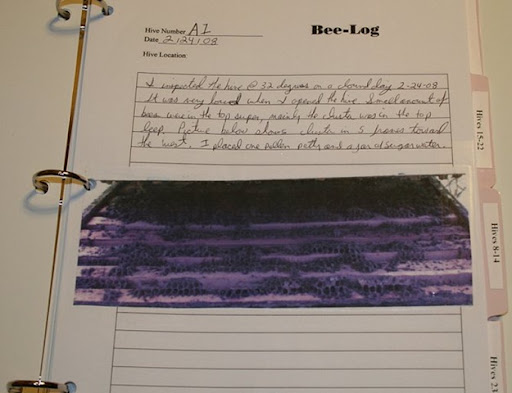 Bee-Log
Hive Number A1
Date 2/24/08
Hive Location
I inspected the hive @ 32 degrees on a cloudy day 2-24-08
It was very when I opened the hive. Small amount of
bees were in the top super, mainly the cluster was in the top
deep. Picture below shows cluster in 5 frames toward
the west. I placed one pollen patty and a jar of sugar water.
Hives 15-22
Hives 8-14
Hives 23